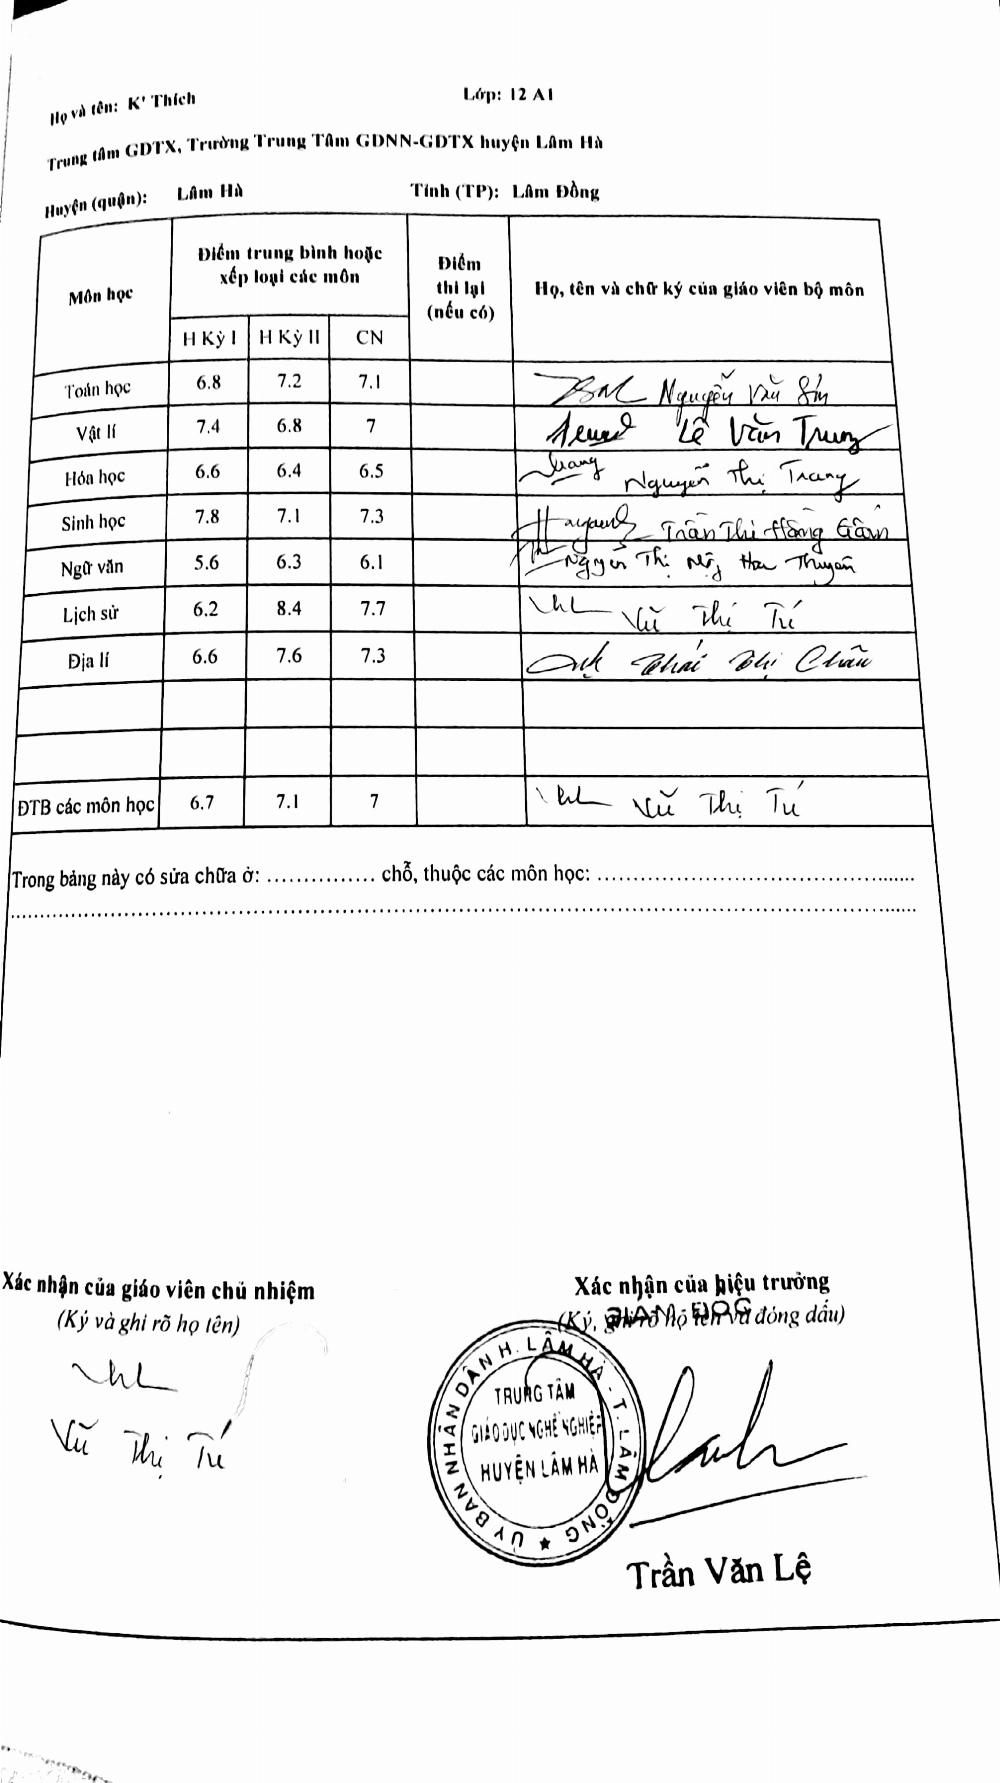 Họ và tên: K' Thích Lớp: 12 A1
Trung tâm GDTX, Trường Trung Tâm GDNN-GDTX huyện Lâm Hà
Huyện (quận): Lâm Hà Tỉnh (TP): Lâm Đồng
Môn học Điểm trung bình hoặc xếp loại các môn Điểm thi lại (nếu có) Họ, tên và chữ ký của giáo viên bộ môn
H Kỳ I H Kỳ II CN
Toán học 6.8 7.2 7.1 Nguyễn Văn
Vật lí 7.4 6.8 7 Lê Văn Trung
Hóa học 6.6 6.4 6.5 Trang Nguyễn Thị Trang
Sinh học 7.8 7.1 7.3 Trần Thị Hồng
Ngữ văn 5.6 6.3 6.1 Nguyễn Thị
Lịch sử 6.2 8.4 7.7 Vũ Thị Tú
Địa lí 6.6 7.6 7.3 Thái Thị Châu
ĐTB các môn học 6.7 7.1 7 Vũ Thị Tú
Trong bảng này có sửa chữa ở: ............... chỗ, thuộc các môn học: ................................................
................................................................................
Xác nhận của giáo viên chủ nhiệm Xác nhận của hiệu trưởng
(Ký và ghi rõ họ tên) (Ký, ghi rõ họ tên và đóng dấu)
GIÁM ĐỐC
Vũ Thị Tú
ỦY BAN NHÂN DÂN H. LÂM HÀ - T. LÂM ĐỒNG ★
TRUNG TÂM
GIÁO DỤC NGHỀ NGHIỆP
HUYỆN LÂM HÀ
Trần Văn Lệ